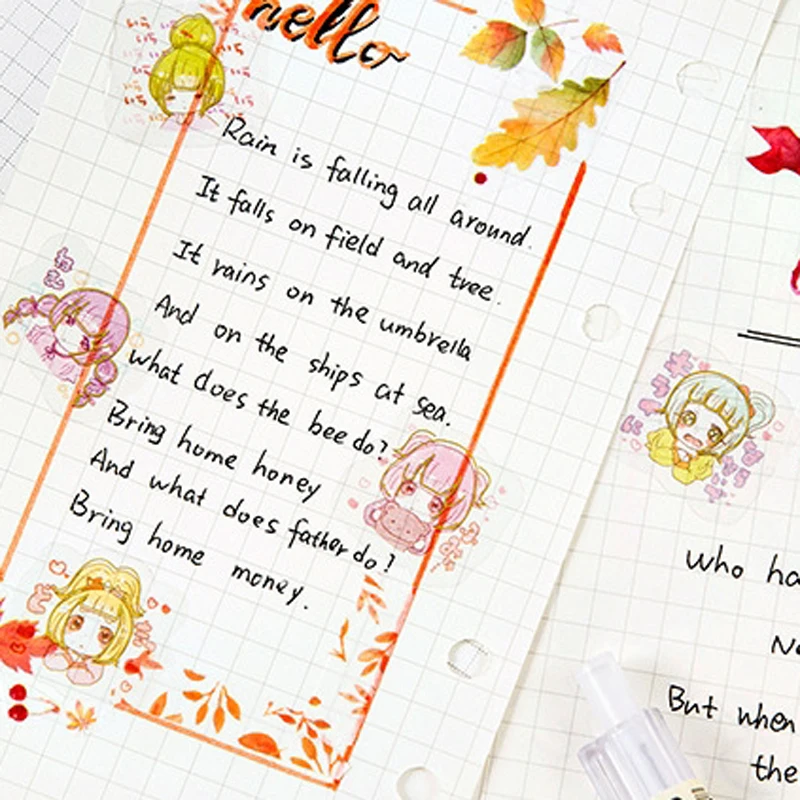 hello
Rain is falling all around.
It falls on field and tree.
It rains on the umbrella
And on the ships at sea.
what does the bee do?
Bring home honey
And what does father do?
Bring home money.
Who ha
No
But when
the